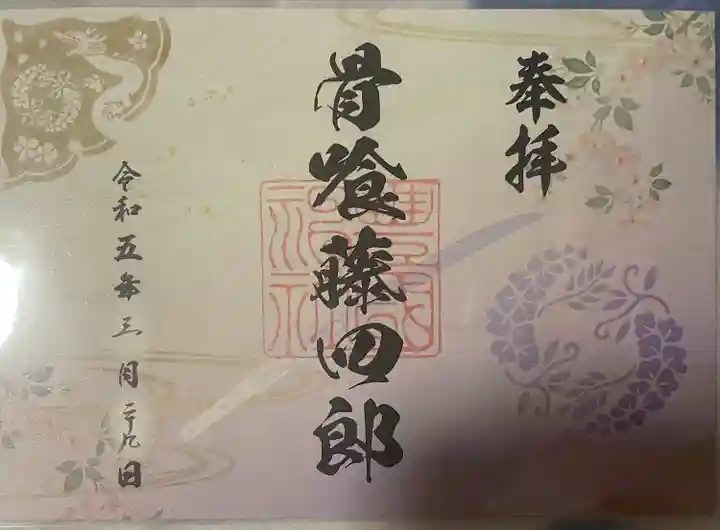 奉拝
骨喰藤四郎
豊國神社
令和五年三月二十九日